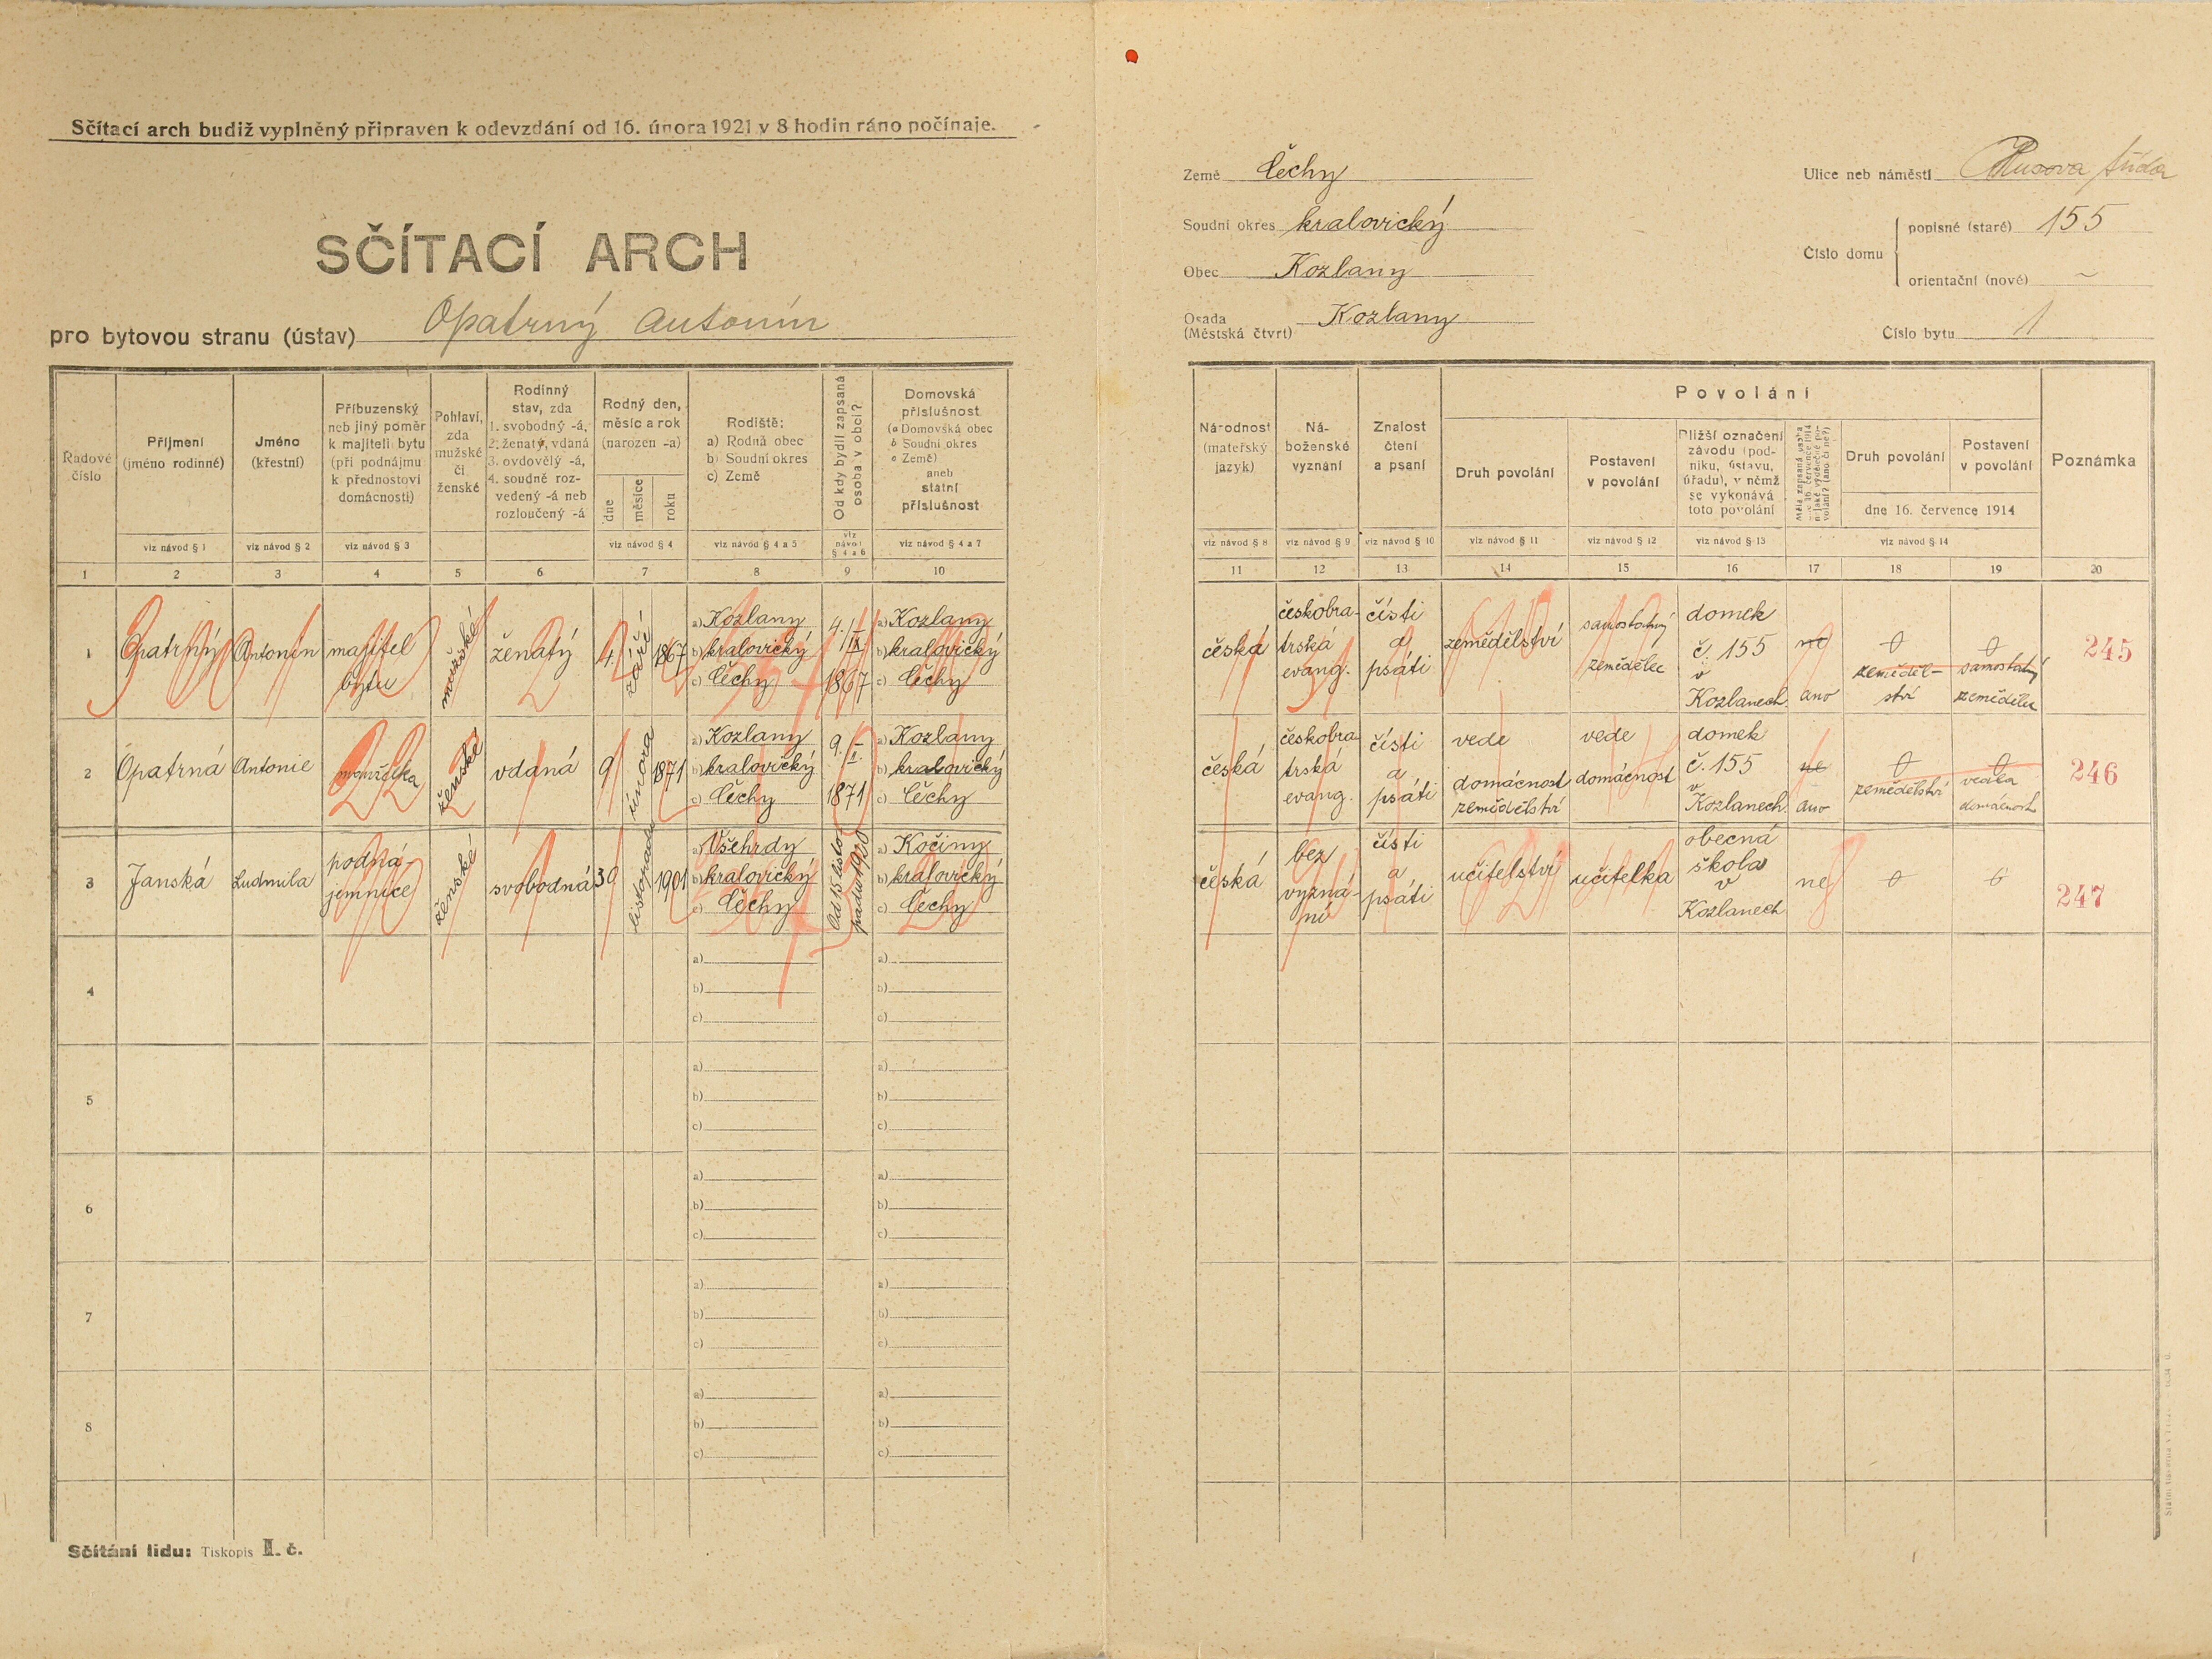 Sčítací arch budiž vyplněný připraven k odevzdání od 16. února 1921 v 8 hodin ráno počínaje.
SČÍTACÍ ARCH
pro bytovou stranu (ústav) Opatrný Antonín
Země Čechy
Soudní okres kralovický
Obec Kozlany
Osada
(Městská čtvrt) Kozlany
Ulice neb náměstí Husova třída
Číslo domu
popisné (staré) 155
orientační (nové) ~
Číslo bytu 1
Řadové
číslo
Příjmení
(jméno rodinné)
viz návod § 1
Jméno
(křestní)
viz návod § 2
Příbuzenský
neb jiný poměr
k majiteli bytu
(při podnájmu
k přednostovi
domácnosti)
viz návod § 3
Pohlaví,
zda
mužské
či
ženské
Rodinný
stav, zda
1. svobodný -á,
2. ženatý, vdaná
3. ovdovělý -á,
4. soudně roz-
vedený -á neb
rozloučený -á
Rodný den,
měsíc a rok
(narozen -a)
dne
měsíce
roku
viz návod § 4
Rodiště:
a) Rodná obec
b) Soudní okres
c) Země
viz návod § 4 a 5
Od kdy bydlí zapsaná
osoba v obci?
viz
návod
§ 4 a 6
Domovská
příslušnost
(a Domovská obec
b Soudní okres
c Země)
aneb
státní
příslušnost
viz návod § 4 a 7
Národnost
(mateřský
jazyk)
viz návod § 8
Ná-
boženské
vyznání
viz návod § 9
Znalost
čtení
a psaní
viz návod § 10
Povolání
Druh povolání
viz návod § 11
Postavení
v povolání
viz návod § 12
Bližší označení
závodu (pod-
niku, ústavu,
úřadu), v němž
se vykonává
toto povolání
viz návod § 13
Druh povolání
Postavení
v povolání
dne 16. července 1914
viz návod § 14
Poznámka
1 2 3 4 5 6 7 8 9 10 11 12 13 14 15 16 17 18 19 20
1
Opatrný
Antonín
majitel
bytu
mužské
ženatý
4.
září
1867
a) Kozlany
b) kralovický
c) Čechy
4.
IX
1867
a) Kozlany
b) kralovický
c) Čechy
česká
českobra-
trská
evang.
čísti
a
psáti
zemědělství
samostatný
zemědělec
domek
č. 155
v
Kozlanech
ne
ano
0
zeměděl-
ství
0
samostatný
zemědělec
245
2
Opatrná
Antonie
manželka
ženské
vdaná
9
února
1871
a) Kozlany
b) kralovický
c) Čechy
9.
II.
1871
a) Kozlany
b) kralovický
c) Čechy
česká
českobra
trská
evang.
čísti
a
psáti
vede
domácnost
zemědělství
vede
domácnost
domek
č. 155
v
Kozlanech
ne
ano
0
zemědělství
0
vedla
domácnost
246
3
Janská
Ludmila
podná-
jemnice
ženské
svobodná
30
listopadu
1901
a) Všehrdy
b) kralovický
c) Čechy
Od 15 listo-
padu 1920
a) Kočiny
b) kralovický
c) Čechy
česká
bez
vyzná-
ní
čísti
a
psáti
učitelství
učitelka
obecná
škola
v
Kozlanech
ne
0
0
247
4
a)
b)
c)
a)
b)
c)
5
a)
b)
c)
a)
b)
c)
6
a)
b)
c)
a)
b)
c)
7
a)
b)
c)
a)
b)
c)
8
a)
b)
c)
a)
b)
c)
Sčítání lidu: Tiskopis II. č.